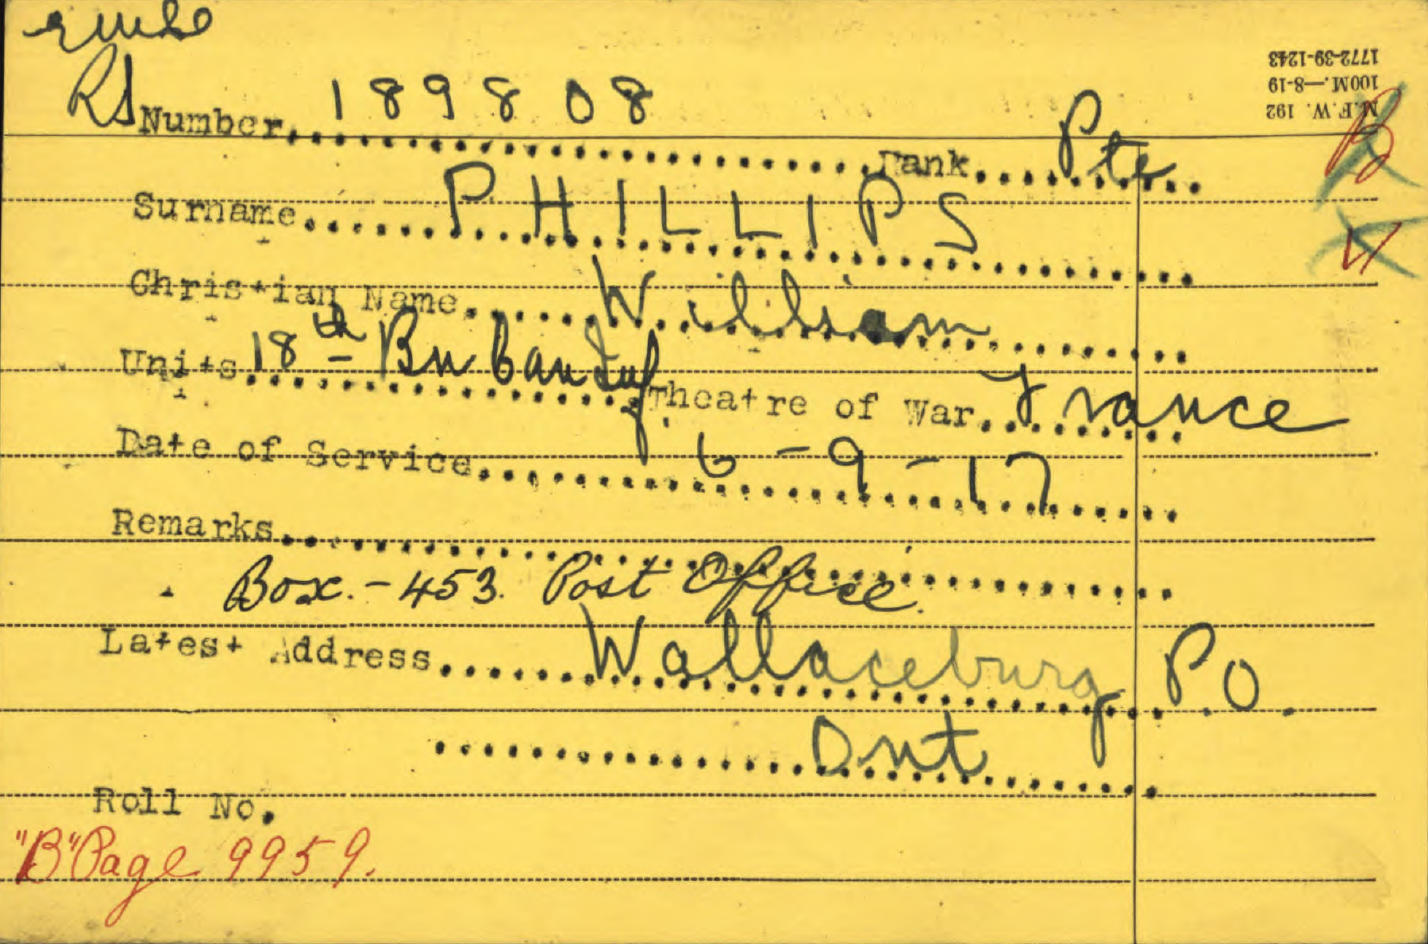 RS
Number 189808
Rank Pte
Surname PHILLIPS
Christian Name William
Units 18th Bn Can Inf.
Theatre of War France
Date of Service 6-9-17
Remarks
Box.-453. Post Office.
Latest Address Wallaceburg P.O.
Ont
Roll No.
"B" Page 9959.
M.F.W. 192
100M.—8-19
1772-39-1243
B
V